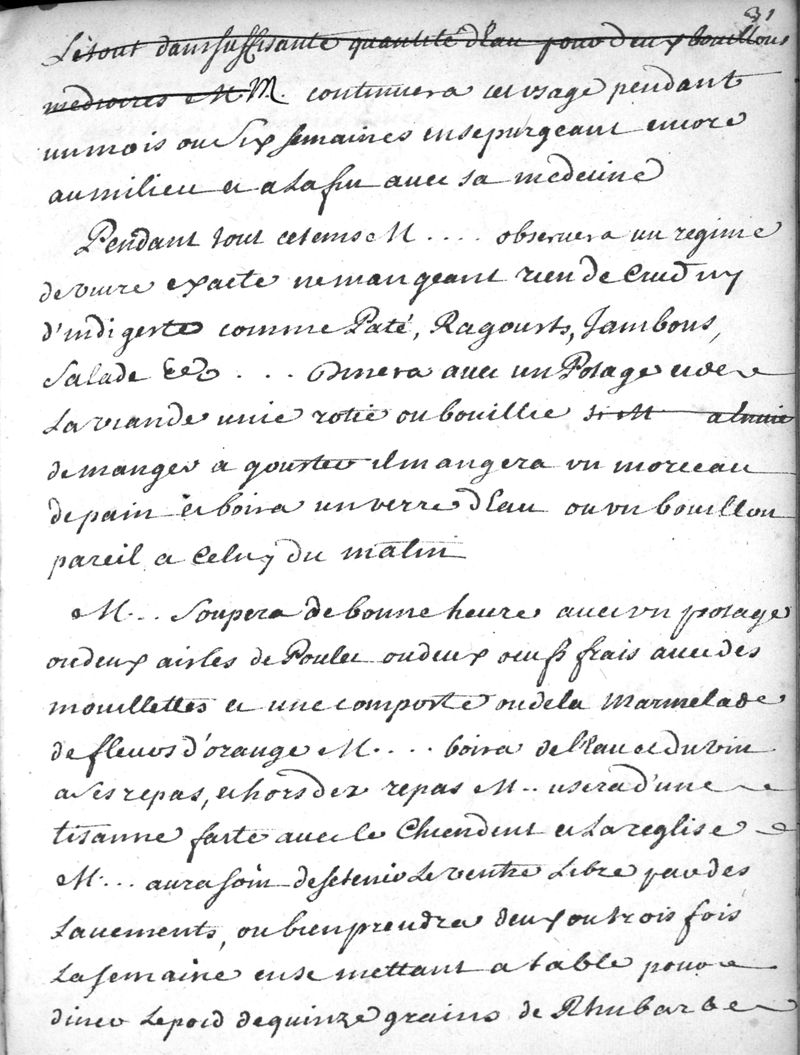 31
Le tout dans suffisante quantité d'Eau pour deux bouillons
mediocres M M. continuera cet usage pendant
un mois ou Six Semaines en se purgeant encore
au milieu et a La fin avec sa medecine
Pendant tout cetems M.... observera un regime
de vivre exacte ne mangeant rien de Crud ny
d'indigeste comme Paté, Ragousts, Jambons,
Salade &c ... Dinera avec un Potage et de
La viande unie rotie ou bouillie si M a Envie
de manger a gouster il mangera un morceau
de pain et boira un verre d'Eau ou vn bouillon
pareil a Celuy du matin
M... Soupera de bonne heure avec vn potage
ou deux aisles de Poulet ou deux oeufs frais avec des
mouillettes et une composte ou de la Marmelade
de fleurs d'orange M.... boira de l'Eau et du vin
a Ses repas, et hors des repas M.. usera d'une
tisanne faite avec le Chiendent et La reglise
M... aura soin de se tenir Le ventre Libre par des
Lavements, ou bien prendra deux ou trois fois
La semaine en se mettant a table pour
diner Le poid de quinze grains de Rhubarbe